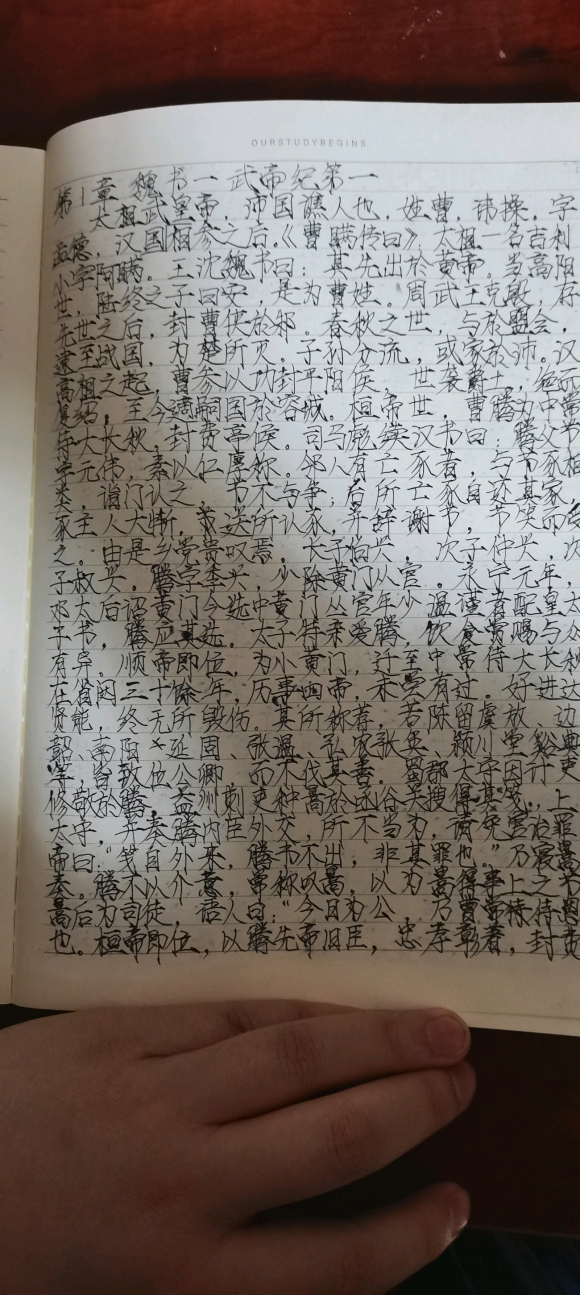 OURSTUDYBEGINS
第1章 魏书一 武帝纪第一
太祖武皇帝，沛国谯人也，姓曹，讳操，字
孟德，汉国相参之后。《曹瞒传曰》：太祖一名吉利
小字阿瞒。王沈魏书曰：其先出於黄帝。当高阳
世，陆终之子曰安，是为曹姓。周武王克殷，存
先世之后，封曹侠於邾。春秋之世，与於盟会，
逮至战国，为楚所灭。子孙分流，或家於沛。汉
高祖之起，曹参以功封平阳侯，世袭爵土，绝而
复绍，至今嫡嗣国於容城。桓帝世，曹腾为中常
侍大长秋，封费亭侯。司马彪续汉书曰：腾父节
字元伟，素以仁厚称。邻人有亡豕者，与节豕相
类，诣门认之，节不与争；后所亡豕自还其家，
豕主人大惭，节送所认豕，并辞谢节，节笑而受
之。由是乡党贵叹焉。长子伯兴，次子仲兴，次
子叔兴。腾字季兴，少除黄门从官。永宁元年，
邓太后诏黄门令选中黄门从官年少温谨者配皇太
子书，腾应其选。太子特亲爱腾，饮食赏赐与众
有异。顺帝即位，为小黄门，迁至中常侍大长秋
在省闼三十馀年，历事四帝，未尝有过。好进达
贤能，终无所毁伤。其所称荐，若陈留虞放、边
韶、南阳延固、张温、弘农张奂、颍川堂谿典
等，皆致位公卿，而不伐其善。蜀郡太守因计吏
修敬於腾，益州刺史种暠於函谷关搜得其笺，上
太守，并奏腾内臣外交，所不当为，请免官治罪
帝曰：“笺自外来，腾书不出，非其罪也。”乃寝暠
奏。腾不以介意，常称叹暠，以为暠得事上之节
暠后为司徒，语人曰：“今日为公，乃曹常侍恩
也。桓帝即位，以腾先帝旧臣，忠孝彰著，封费